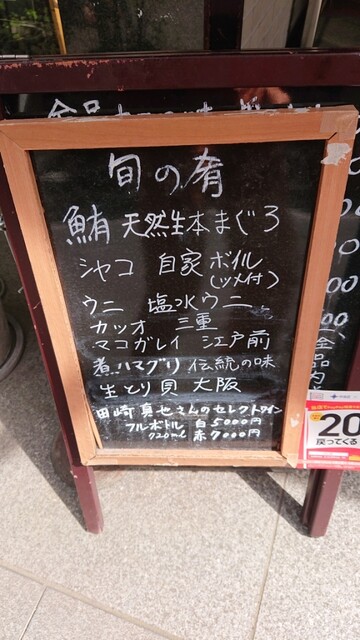 旬の肴
鮪 天然生本まぐろ
シャコ 自家ボイル
(ツメ付)
ウニ 塩水ウニ
カツオ 三重
マコガレイ 江戸前
煮ハマグリ 伝統の味
生とり貝 大阪
田崎真也さんのセレクトワイン
フルボトル 白5000円
720ml 赤7000円
20
戻ってくる